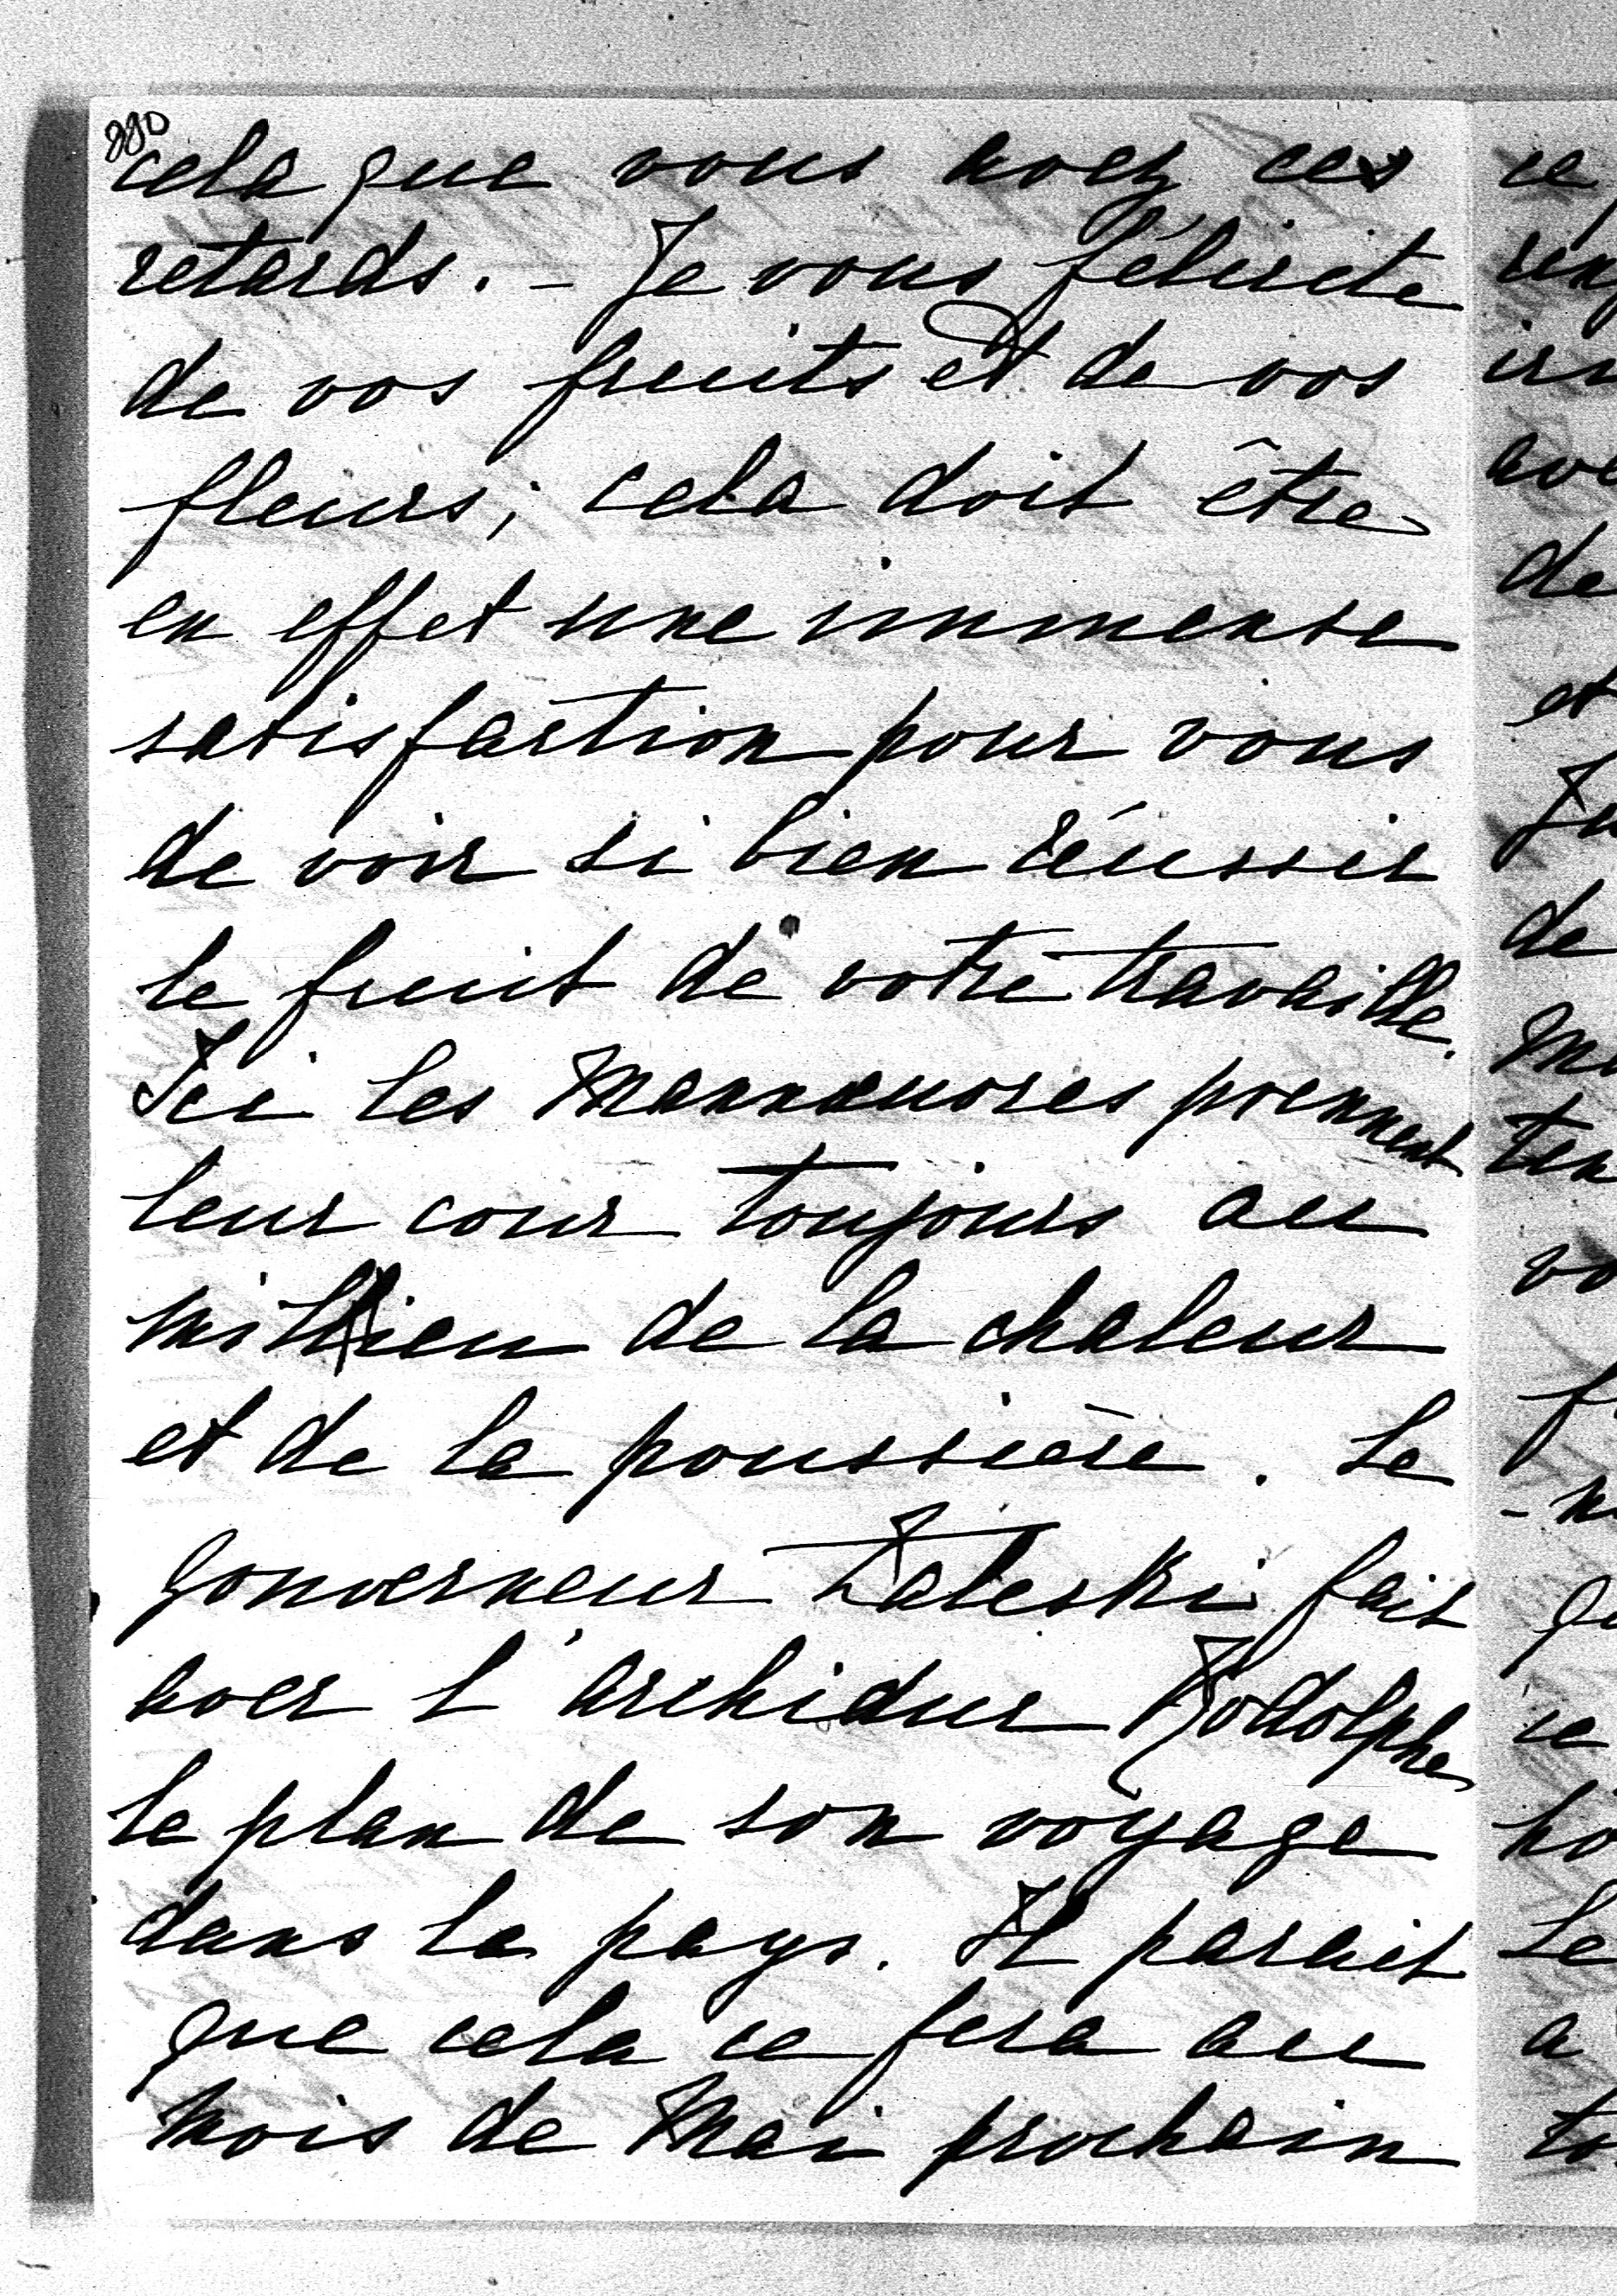 880
cela que vous avez ces
retards. - Je vous félicite
de vos fruits et de vos
fleurs; cela doit être
en effet une immense
satisfaction pour vous
de voir si bien réussir
le fruit de votre travaille.
Ici les Mannœuvres prennent
leur cour toujours au
millieu de la chaleur
et de la poussière. Le
gouverneur Zaleski fait
avec l'archiduc Rodolphe
le plan de son voyage
dans le pays. Il parait
que cela ce fera au
mois de Mai prochain